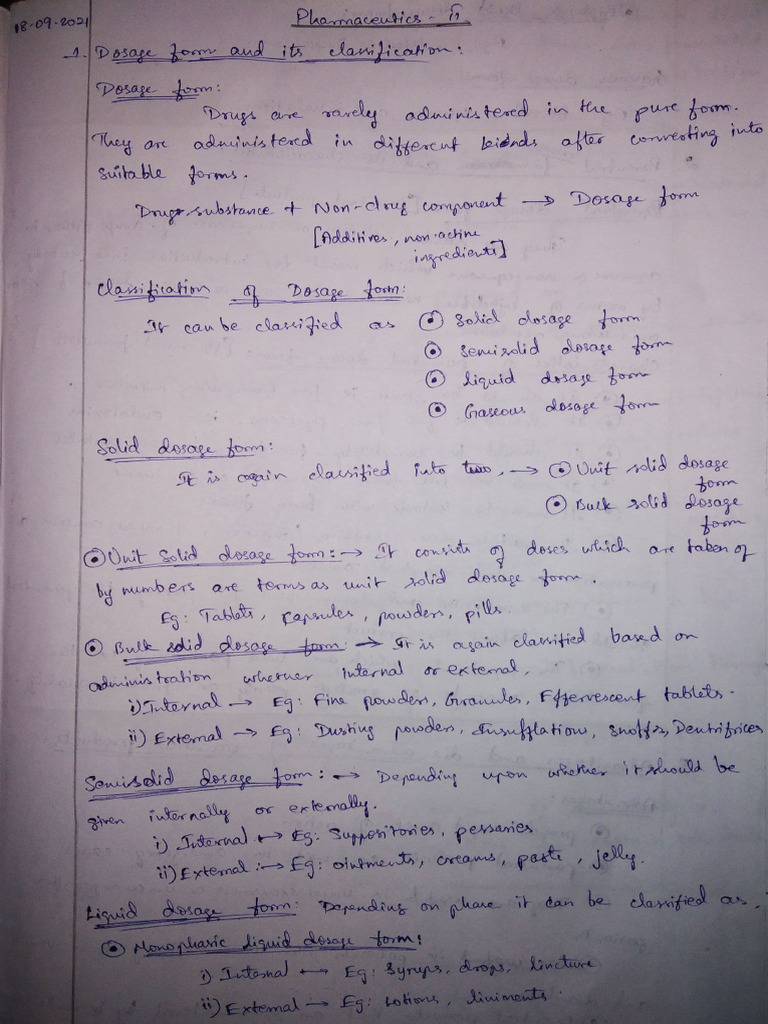 18-09-2021
Pharmaceutics - II
1. Dosage form and its classification:
Dosage form:
Drugs are rarely administered in the pure form.
They are administered in different kinds after converting into
suitable forms.
Drug substance + Non-drug component → Dosage form
[Additives, non-active
ingredients]
Classification of Dosage form:
It can be classified as ⊙ Solid dosage form
⊙ Semisolid dosage form
⊙ liquid dosage form
⊙ Gaseous dosage form
Solid dosage form:
It is again classified into two, → ⊙ Unit solid dosage
form
⊙ Bulk solid dosage
form
⊙ Unit Solid dosage form: → It consists of doses which are taken of
by numbers are terms as unit solid dosage form.
Eg: Tablets, kapsules, powders, pills.
⊙ Bulk solid dosage form → It is again classified based on
administration whether internal or external.
i) Internal → Eg: Fine powders, Granules, Effervescent tablets.
ii) External → Eg: Dusting powders, Insufflation, Snoffs, Dentrifrices
Semisolid dosage form: → Depending upon whether it should be
given internally or externally.
i) Internal → Eg: Suppositories, pessaries
ii) External: → Eg: ointments, creams, paste, jelly.
Liquid dosage form: Depending on phase it can be classified as.
⊙ Monophasic liquid dosage form:
i) Internal → Eg: Syrups, drops, tincture
ii) External → Eg: Lotions, liniments